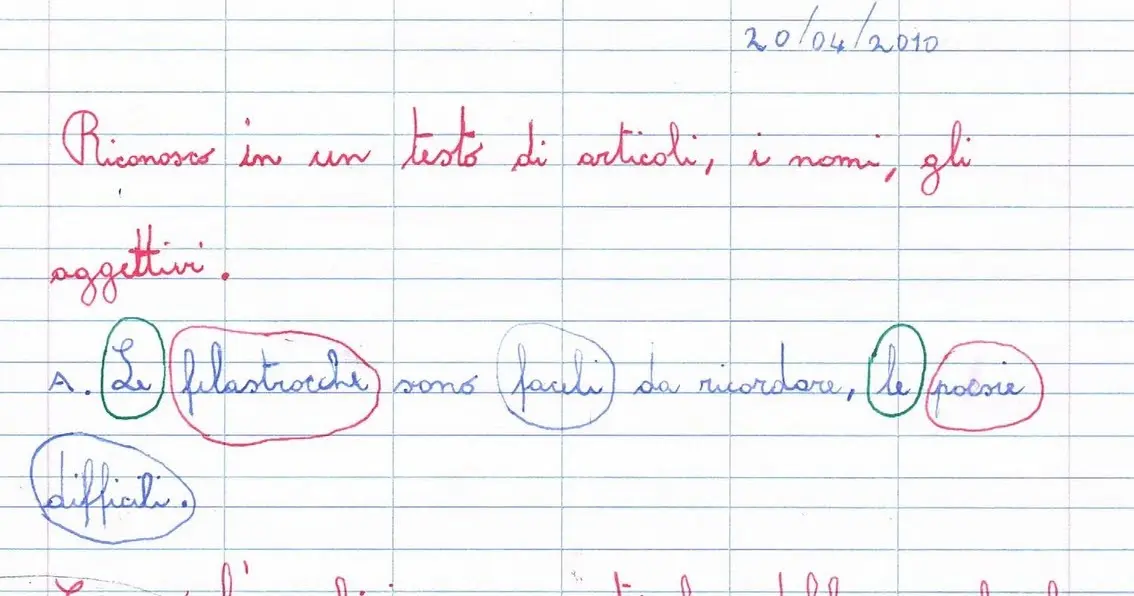 20/04/2010
Riconosco in un testo di articoli, i nomi, gli
aggettivi.
A. Le filastrocche sono facili da ricordare, le poesie
difficili.